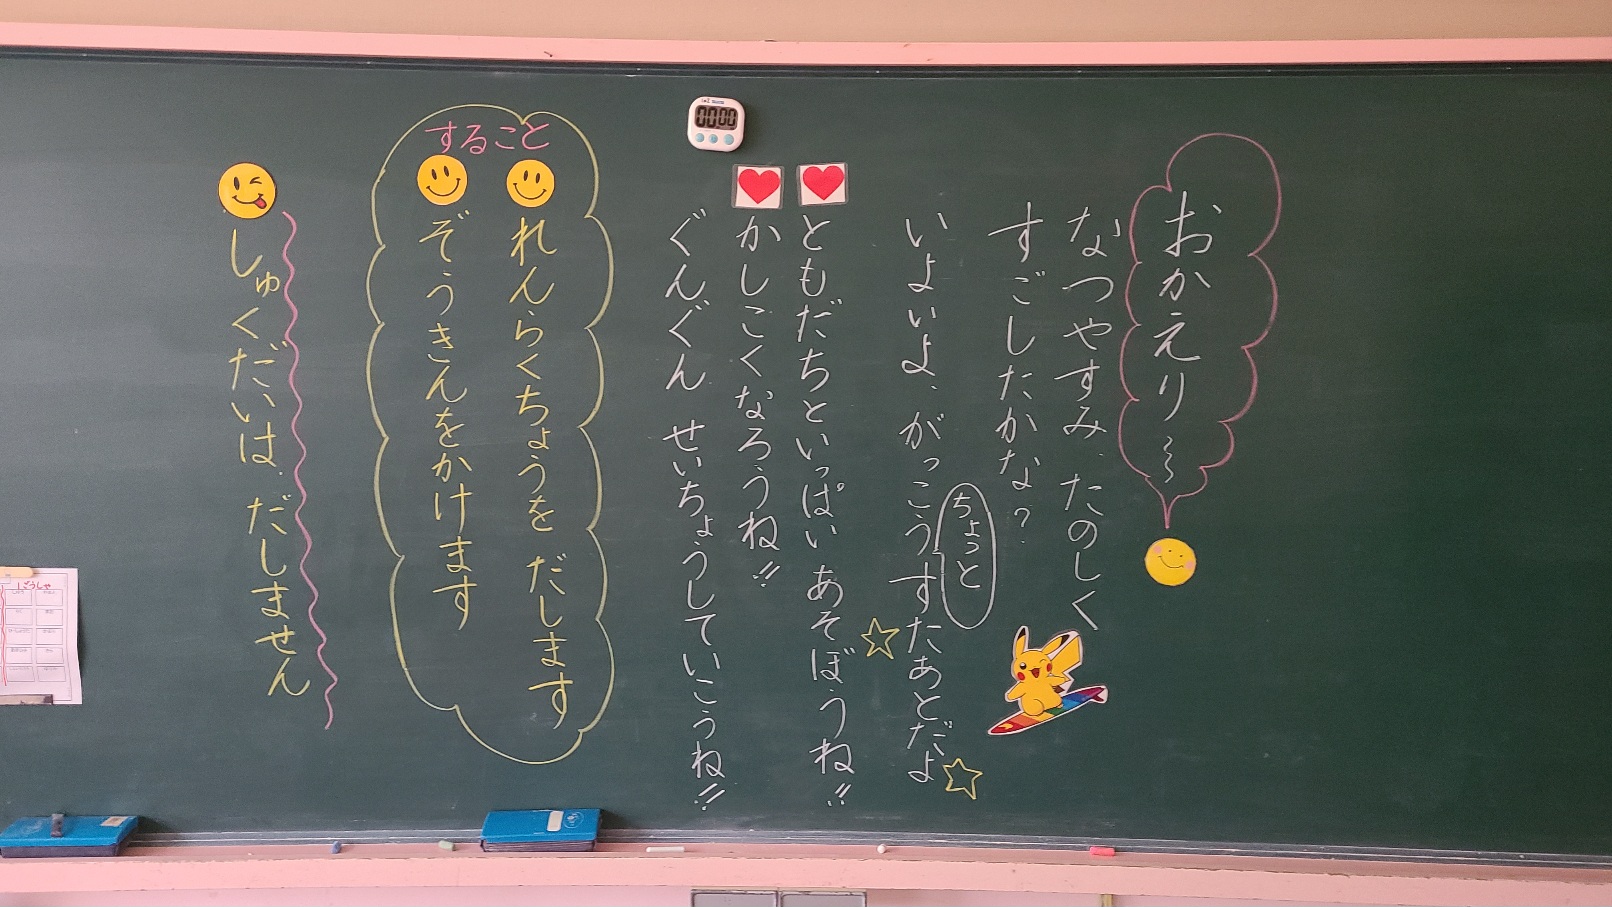 おかえり〜
なつやすみ、たのしく
すごしたかな？
いよいよ、がっこうすたあとだよ
ちょっと
ともだちといっぱいあそぼうね!!
かしこくなろうね!!
ぐんぐん せいちょうしていこうね!!
すること
れんらくちょうを だします
ぞうきんをかけます
しゅくだいは、だしません
0000